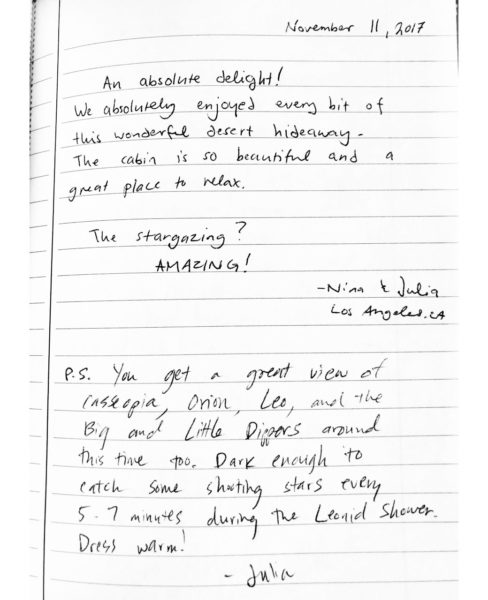 November 11, 2017
An absolute delight!
We absolutely enjoyed every bit of
this wonderful desert hideaway.
The cabin is so beautiful and a
great place to relax.
The stargazing?
AMAZING!
-Nina & Julia
Los Angeles, CA
P.S. You get a great view of
Casseopia, Orion, Leo, and the
Big and Little Dippers around
this time too. Dark enough to
catch some shooting stars every
5-7 minutes during the Leonid Shower.
Dress warm!
- Julia